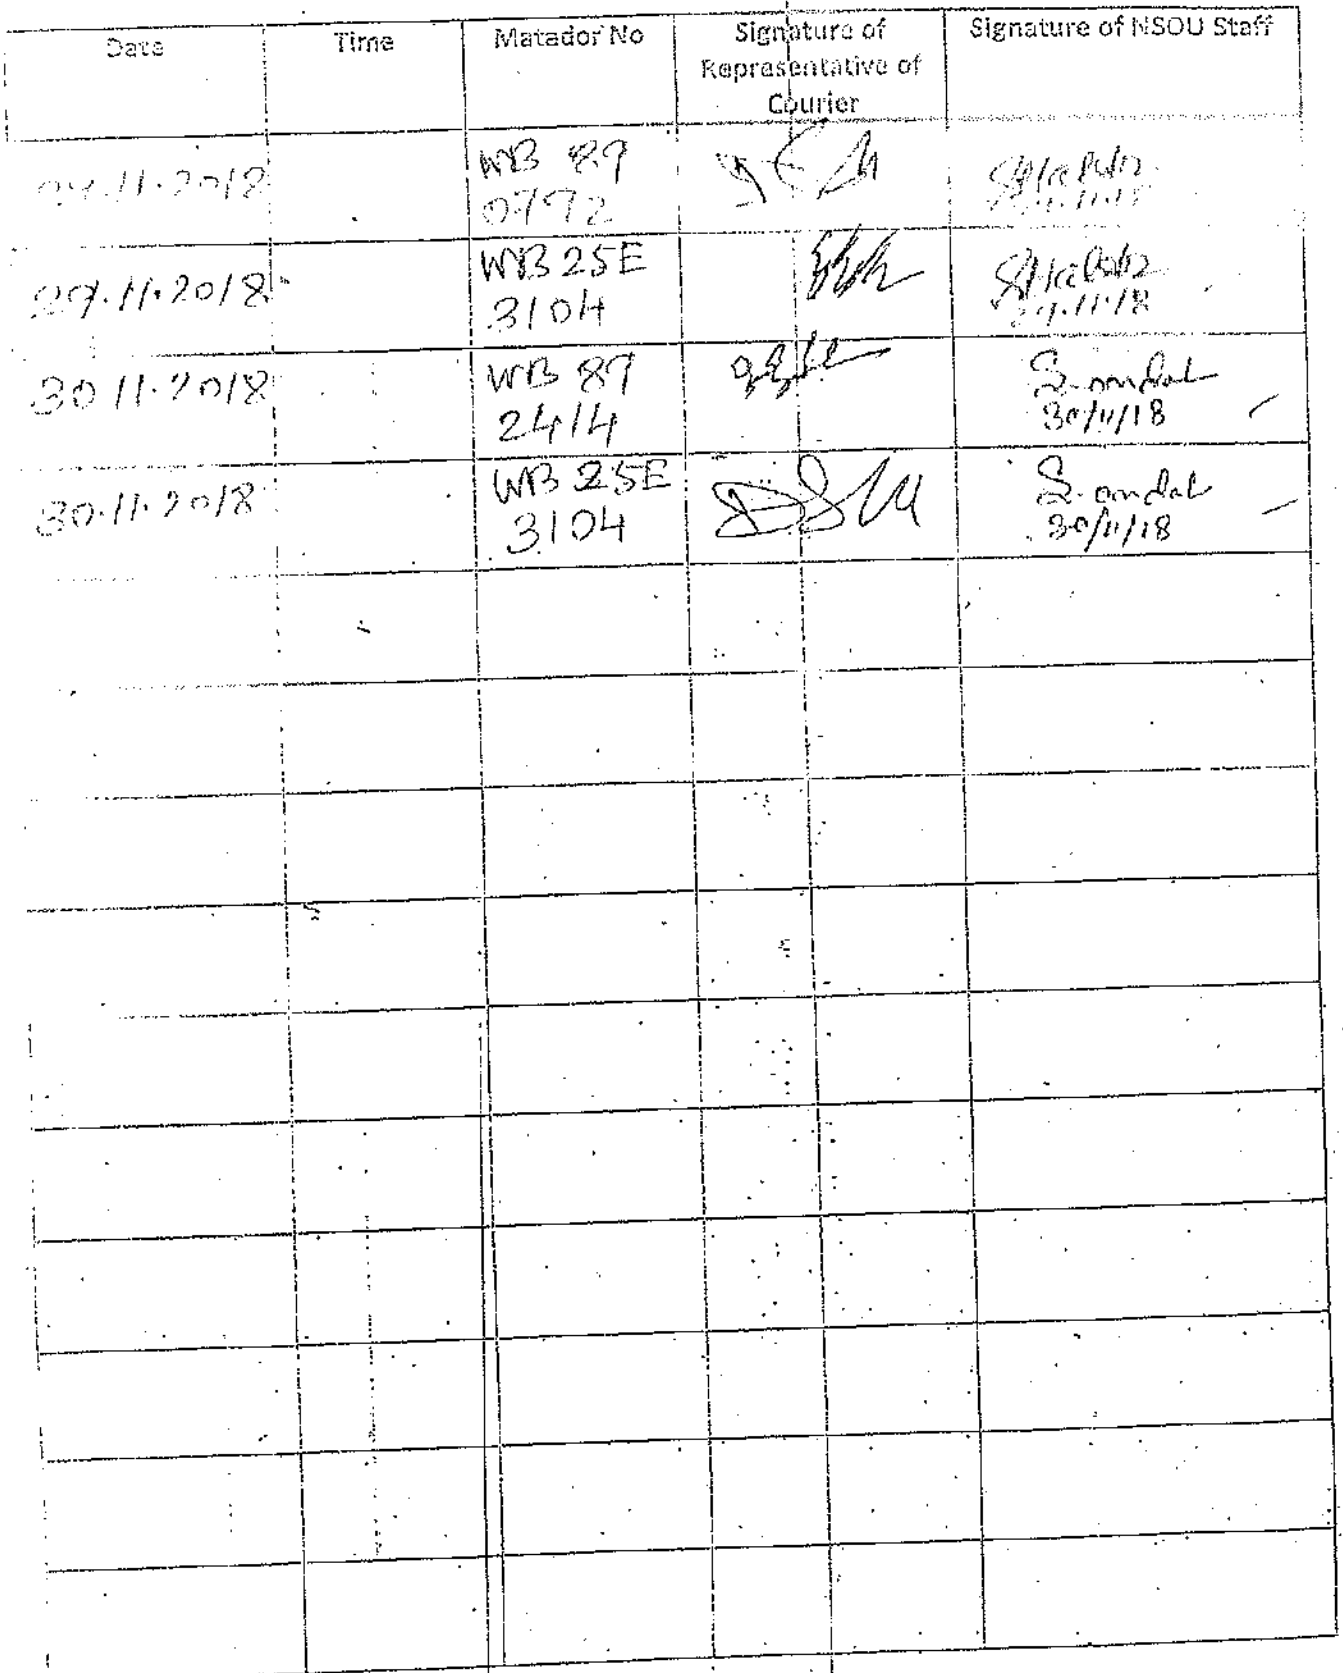 Date Time Matador No Signature of Representative of Courier Signature of NSOU Staff
WB 89
0772
29.11.2018 WB 25E
3104
29.11.18
30.11.2018 WB 89
2414
S. mndal
30/11/18
30.11.2018 WB 25E
3104
S. mndal
30/11/18